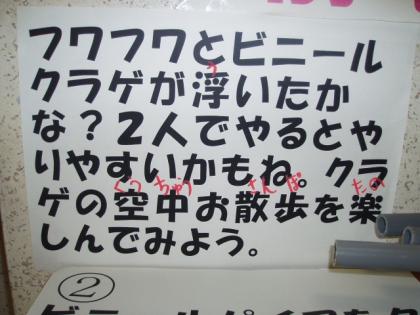 フワフワとビニール
う
クラゲが浮いたか
な？2人でやるとや
りやすいかもね。クラ
くう ちゅう さん ぽ たの
ゲの空中お散歩を楽
しんでみよう。
②